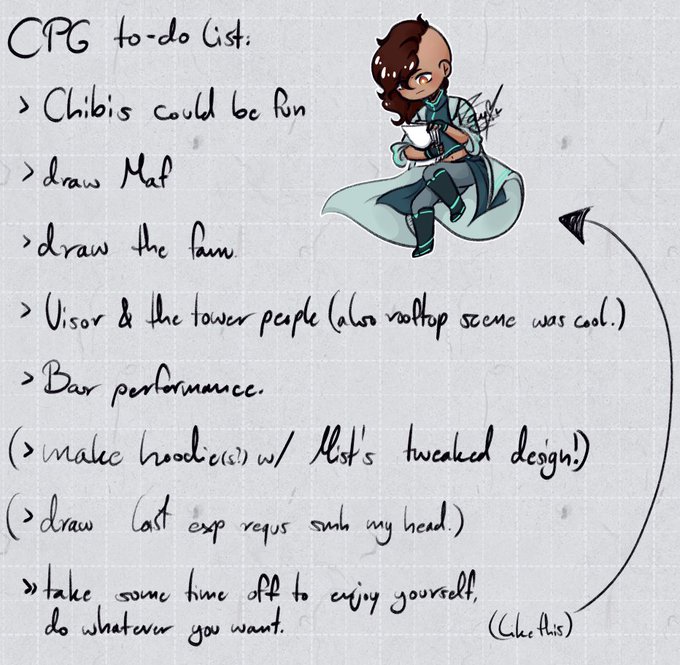 CPG to-do list:
> Chibis could be fun
> draw Maf
> draw the fam.
> Visor & the tower people (also rooftop scene was cool.)
> Bar performance.
(> make hoodie(s?) w/ Mist's tweaked design!)
(> draw last exp requs smh my head.)
» take some time off to enjoy yourself,
do whatever you want.
(like this)